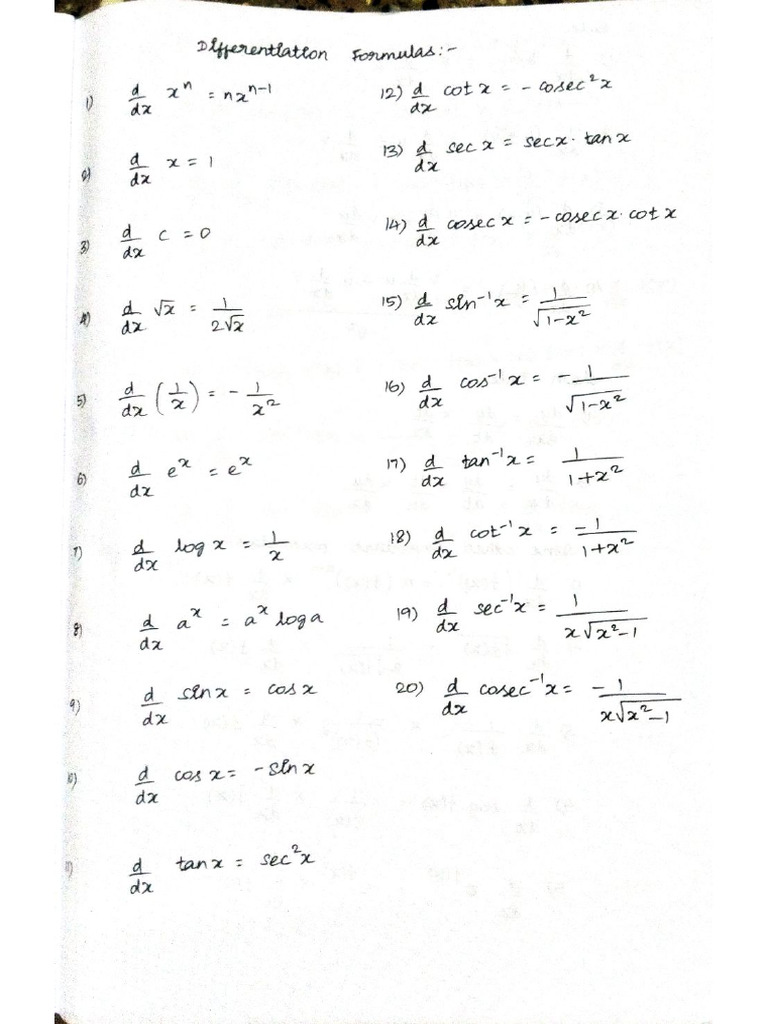 Differentiation Formulas:-
1) d/dx xⁿ = nxⁿ⁻¹
2) d/dx x = 1
3) d/dx c = 0
4) d/dx √x = 1/2√x
5) d/dx (1/x) = - 1/x²
6) d/dx eˣ = eˣ
7) d/dx log x = 1/x
8) d/dx aˣ = aˣ log a
9) d/dx sinx = cosx
10) d/dx cosx = -sinx
11) d/dx tanx = sec²x
12) d/dx cot x = - cosec²x
13) d/dx sec x = secx · tanx
14) d/dx cosec x = -cosec x · cotx
15) d/dx sin⁻¹x = 1/√1-x²
16) d/dx cos⁻¹x = - 1/√1-x²
17) d/dx tan⁻¹x = 1/1+x²
18) d/dx cot⁻¹x = -1/1+x²
19) d/dx sec⁻¹x = 1/x√x²-1
20) d/dx cosec⁻¹x = -1/x√x²-1